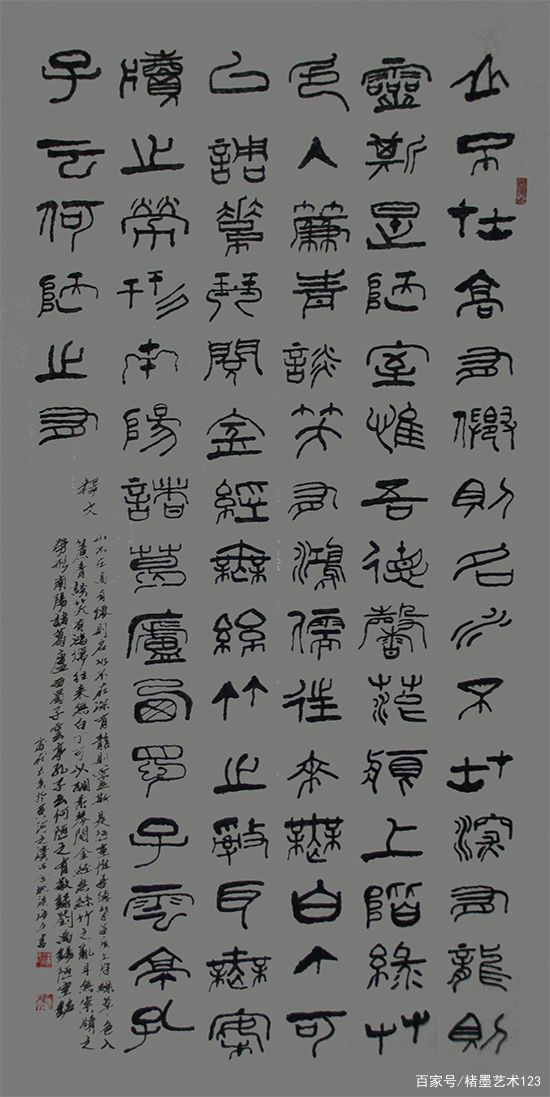 山不在高有僊則名水不在深有龍則
靈斯是陋室惟吾德馨菭痕上階綠艸
色入簾青談笑有鴻儒往來無白丁可
以調素琴閱金經無絲竹之亂耳無案
牘之勞形南陽諸葛廬西蜀子雲亭孔
子云何陋之有
釋文
山不在高有僊則名水不在深有龍則靈斯是陋室惟吾德馨苔痕上階綠草色入
簾青談笑有鴻儒往來無白丁可以調素琴閱金經無絲竹之亂耳無案牘之
勞形南陽諸葛廬西蜀子雲亭孔子云何陋之有敬錄劉禹錫陋室銘
百家号/楮墨艺术123